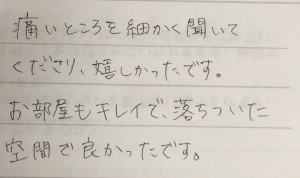 痛いところを細かく聞いて
くださり、嬉しかったです。
お部屋もキレイで、落ちついた
空間で良かったです。